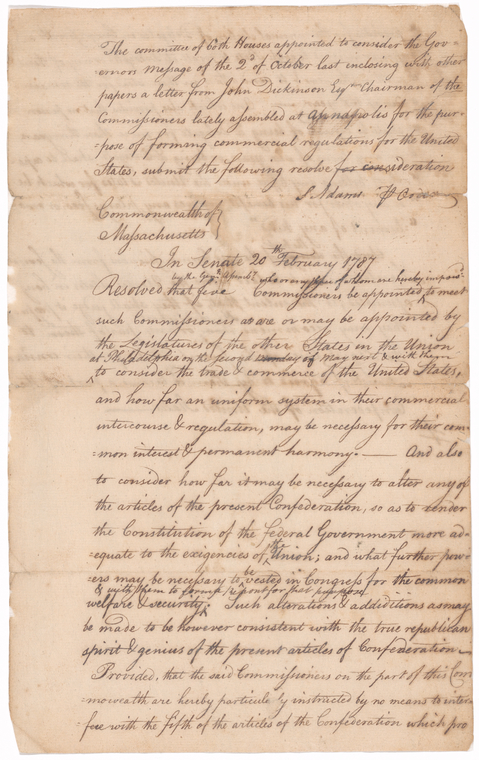 The committee of both Houses appointed to consider the Gov-
ernors message of the 2d of October last enclosing with other
papers a letter from John Dickinson Esqr Chairman of the
Commissioners lately assembled at Annapolis for the pur-
-pose of forming commercial regulations for the United
States, submit the following resolve for consideration
S. Adams pr Order
Commonwealth of
Massachusetts
In Senate 20th February 1787
by the Genl. Assembly who or any three of whom are hereby impowd.
Resolved that five Commissioners be appointed to meet
such Commissioners as are or may be appointed by
the Legislatures of the other States in the Union
at Philadelphia on the second monday of May next & with them
to consider the trade & commerce of the United States,
and how far an uniform system in their commercial
intercourse & regulation, may be necessary for their com-
-mon interest & permanent harmony. — And also
to consider how far it may be necessary to alter any of
the articles of the present Confederation, so as to render
the Constitution of the federal Government more ad-
-equate to the exigencies of the Union; and what further pow-
-ers may be necessary to be vested in Congress for the common
& with them to form a report for that purpose
welfare & security. Such alterations & addictions as may
be made to be however consistent with the true republican
spirit & genius of the present articles of Confederation—
Provided, that the said Commissioners on the part of this Com
monwealth are hereby particularly instructed by no means to inter-
-fere with the fifth of the articles of the Confederation which pro